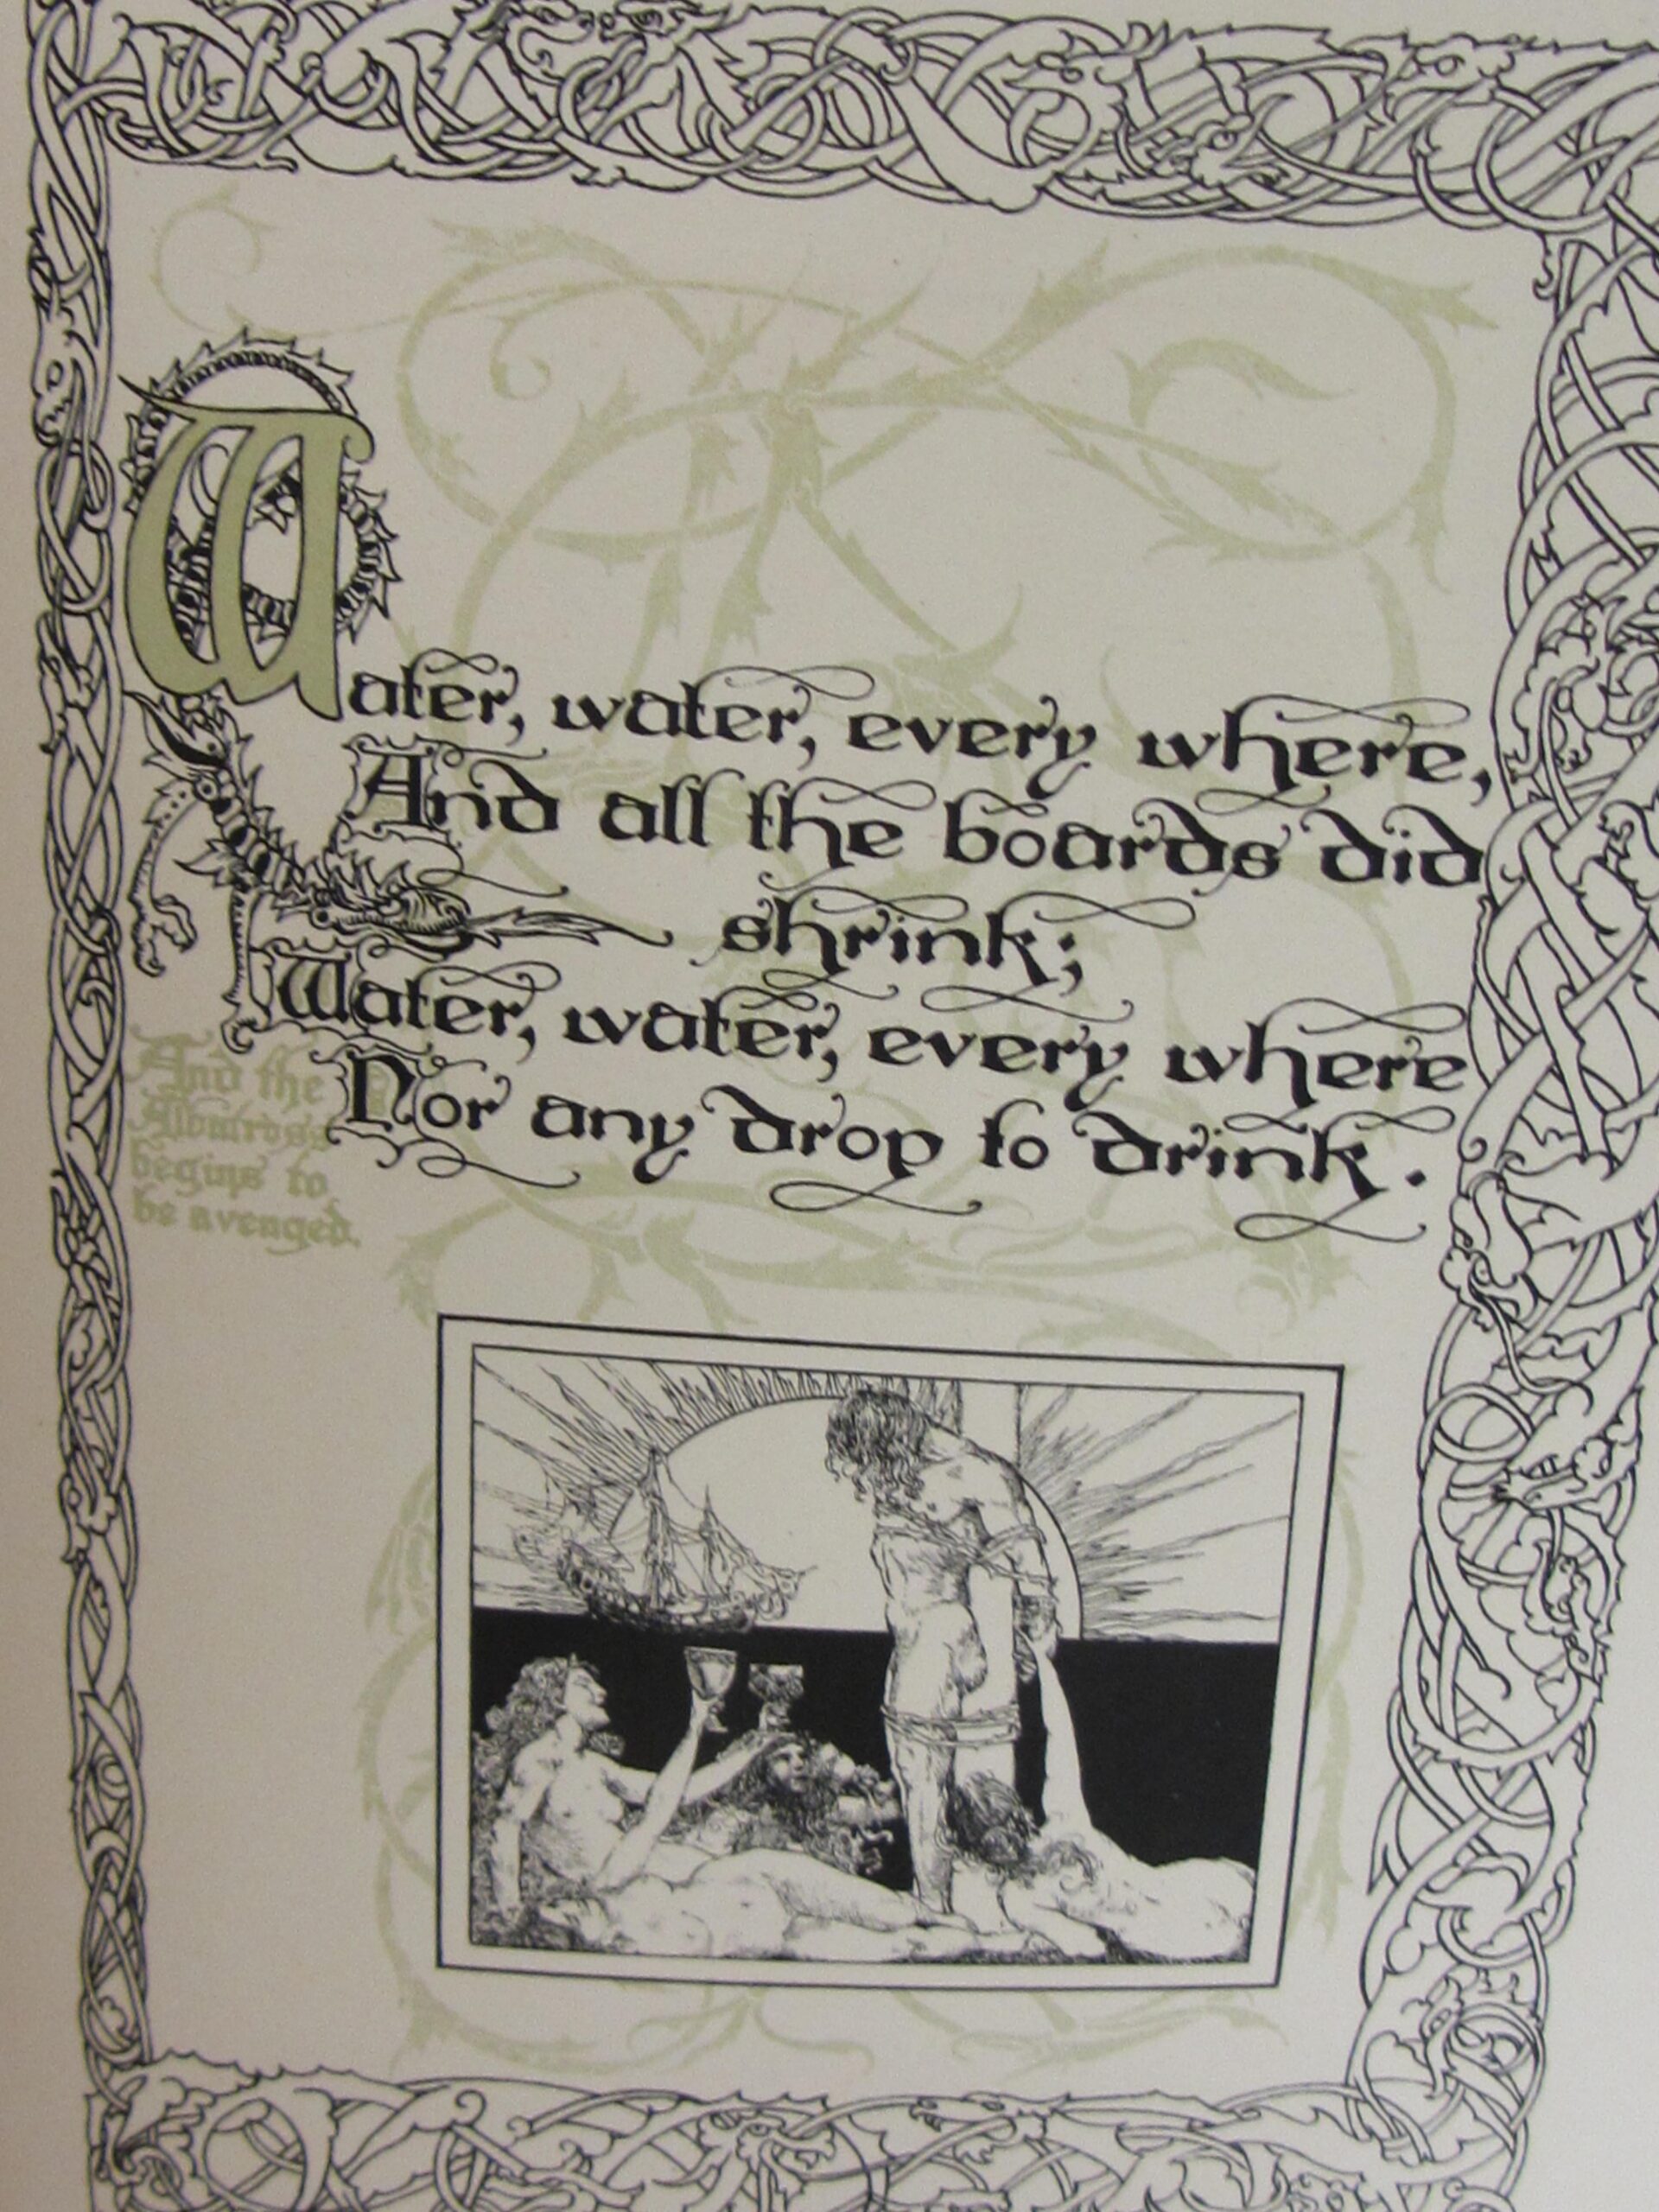 Water, water, every where,
And all the boards did
shrink;
Water, water, every where
Nor any drop to drink.
And the
Albatross
begins to
be avenged.